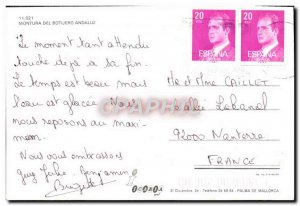 11.021
MONTURA DEL BOTIJERO ANDALUZ
20
PTA
ESPAÑA
20
PTA
ESPAÑA
Le moment tant attendu
touche déjà à sa fin.
Le temps est beau mais
l'eau est glacée. Nous
nous reposons au maxi-
mum.
Nous vous embrassons
Guy Julie Benjamin
Brigitte
Mr et Mme CAILLET
92000 Nanterre
FRANCE
31 Diciembre, 24 - Teléfono - PALMA DE MALLORCA